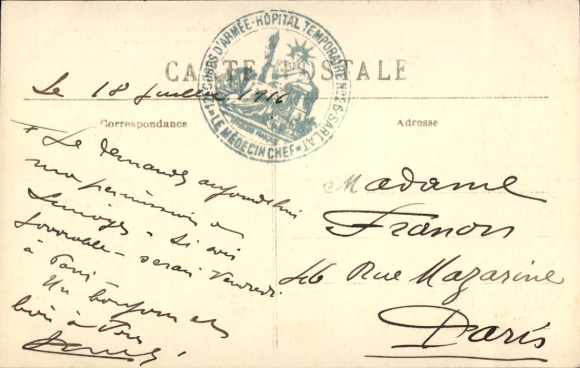 CARTE POSTALE
12e CORPS D'ARMÉE - HÔPITAL TEMPORAIRE N° 26 SARLAT
LE MÉDECIN CHEF
Le 18 Juillet 1916
Correspondance
Je demande aujourd'hui
ma permission
Limoges - Si avis
favorable - serai Vendredi
à Paris
Un bonjour et
à Vous
Adresse
Madame
Françon
46 Rue Mazarine
Paris